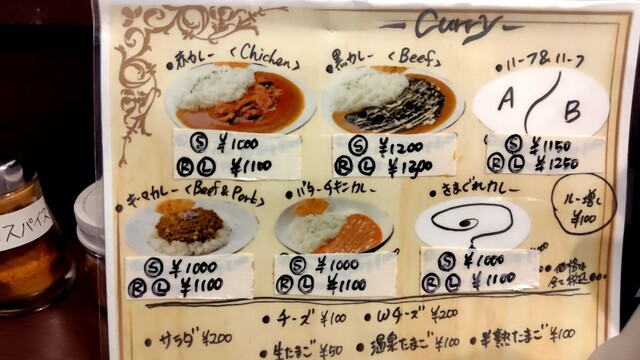 Curry
•赤カレー〈Chicken〉
Ⓢ ¥1000
ⓇⓁ ¥1100
•黒カレー〈Beef〉
Ⓢ ¥1200
ⓇⓁ ¥1300
•ハーフ&ハーフ
A B
Ⓢ ¥1150
ⓇⓁ ¥1250
•キーマカレー〈Beef&Pork〉
Ⓢ ¥1000
ⓇⓁ ¥1100
•バターチキンカレー
Ⓢ ¥1000
ⓇⓁ ¥1100
•きまぐれカレー
Ⓢ ¥1000
ⓇⓁ ¥1100
ルー増し
¥100
価格は
全て税込
•チーズ ¥100 •Wチーズ ¥200
•サラダ ¥200 •生たまご ¥50 •温泉たまご ¥100 •半熟たまご ¥100
スパイス